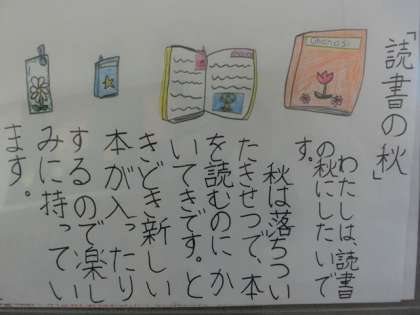 「読書の秋」
わたしは、読書
の秋にしたいで
す。
秋は落ちつい
たきせつで、本
を読むのにか
いてきです。と
きどき新しい
本が入ったり
するので楽し
みに持ってい
ます。
Ohanasi